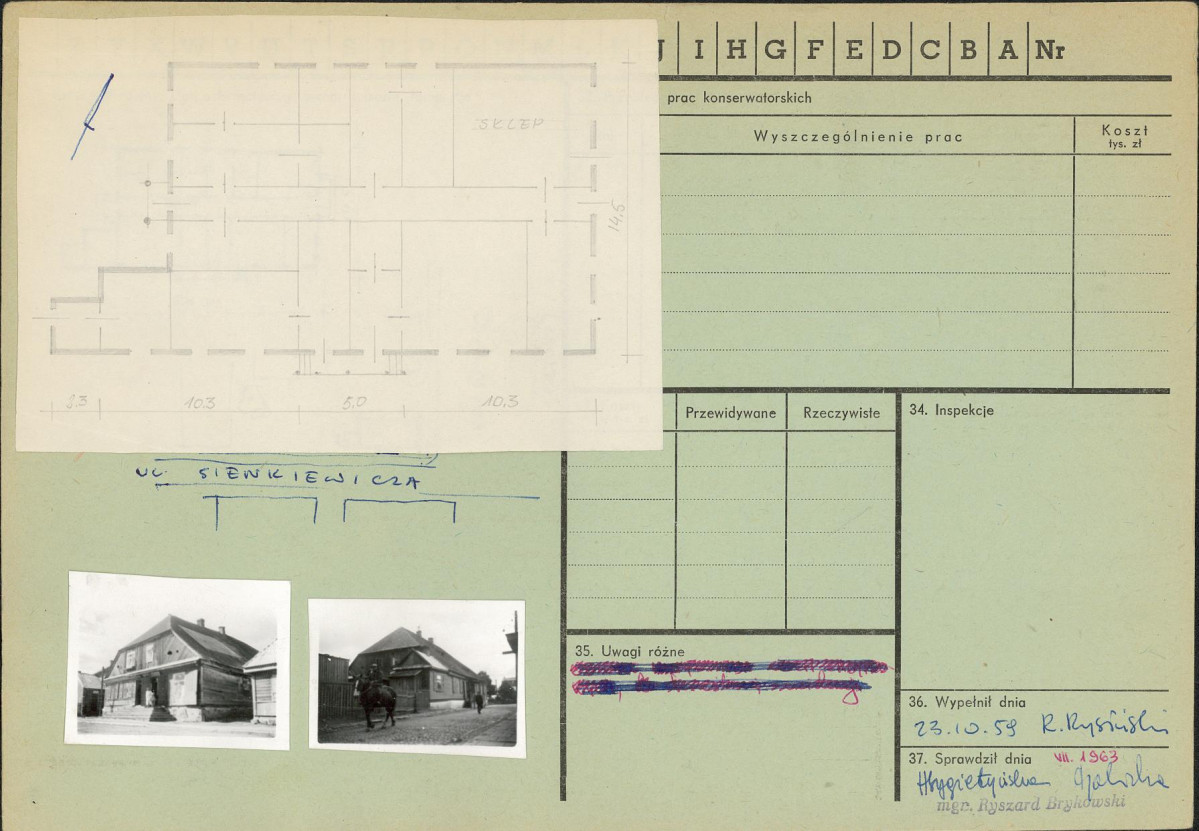 J I H G F E D C B A Nr
prac konserwatorskich
Wyszczególnienie prac
Koszt
tys. zł
SKLEP
14,5
3.3 10.3 5,0 10,3
UL. SIENKIEWICZA
Przewidywane
Rzeczywiste
34. Inspekcje
35. Uwagi różne
36. Wypełnił dnia
23.10.59 R. Rysiński
37. Sprawdził dnia VII. 1963
mgr. Ryszard Brykowski